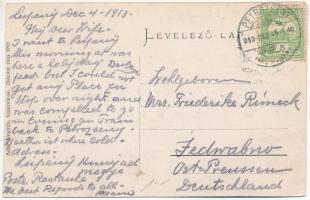 Lupény Dec 4 - 1913.
My Dear Wife.
I went to Lupény
this morning at was
here a holiday
but I could not
get any Place to
Stop over night and
was compelled to go
in Evening on Train
back to Petrozseny.
is where
adress.
Lupény Hunyad
megye
Poste Restante
the best Regards to all
LEVELEZŐ-LAP
PETROZSÉNY
913 DEC
5
Wohlgeboren
Mrs. Friederike Rimeck
Jedwabno
Ost-Preussen
Deutschland